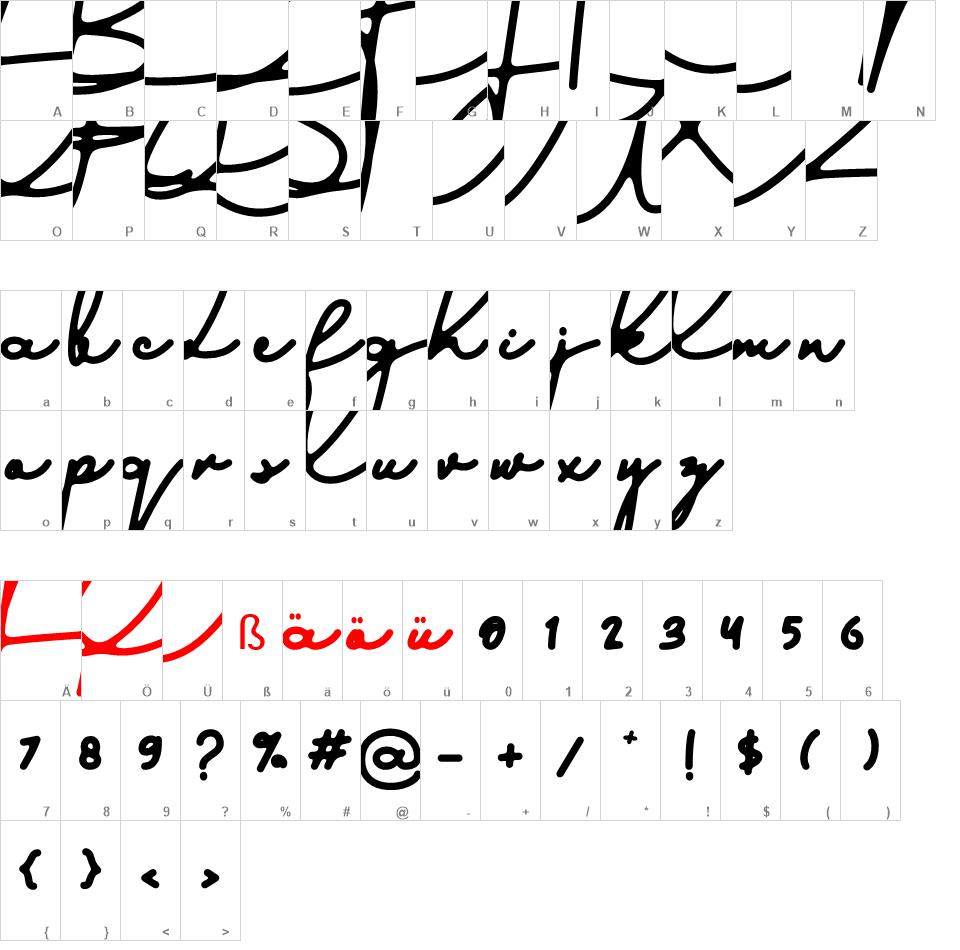 A B C D E F G H I J K L M N
O P Q R S T U V W X Y Z
a b c d e f g h i j k l m n
a b c d e f g h i j k l m n
o p q r s t u v w x y z
o p q r s t u v w x y z
ß ä ö ü 0 1 2 3 4 5 6
Ä Ö Ü ß ä ö ü 0 1 2 3 4 5 6
7 8 9 ? % # @ - + / * ! $ ( )
7 8 9 ? % # @ - + / * ! $ ( )
{ } < >
{ } < >